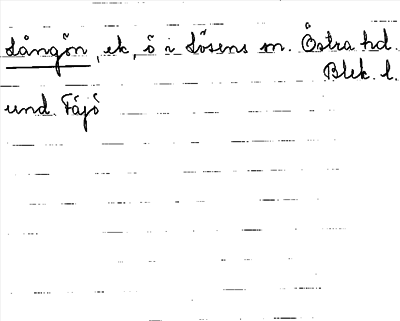 Långön, ek, ö i Lösens sn. Östra hd.
Blek. l.
und Fäjö